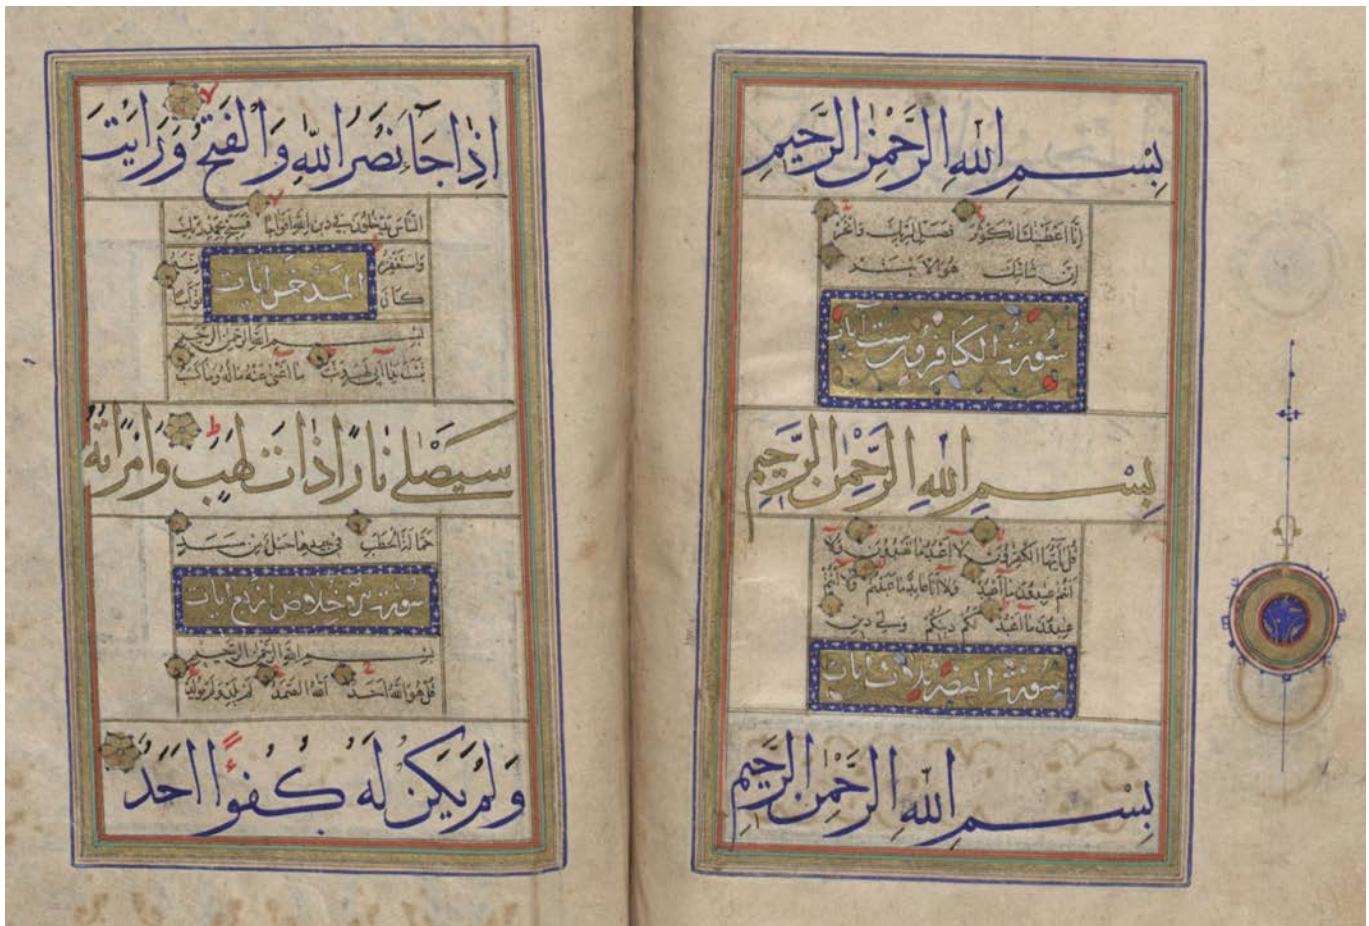 بِسْمِ اللهِ الرَّحْمٰنِ الرَّحِيمِ
اِنَّا اَعْطَيْنَاكَ الْكَوْثَرَ فَصَلِّ لِرَبِّكَ وَانْحَرْ
اِنَّ شَانِئَكَ هُوَ الْاَبْتَرُ
سورة الكافرون ست آيات
بِسْمِ اللهِ الرَّحْمٰنِ الرَّحِيمِ
قُلْ يَا اَيُّهَا الْكٰفِرُونَ لَا اَعْبُدُ مَا تَعْبُدُونَ وَلَا
اَنْتُمْ عٰبِدُونَ مَا اَعْبُدُ وَلَا اَنَا عَابِدٌ مَا عَبَدْتُمْ وَلَا اَنْتُمْ
عٰبِدُونَ مَا اَعْبُدُ لَكُمْ دِينُكُمْ وَلِيَ دِينِ
سورة النصر ثلاث ايات
بِسْمِ اللهِ الرَّحْمٰنِ الرَّحِيمِ
اِذَا جَآءَ نَصْرُ اللهِ وَالْفَتْحُ وَرَاَيْتَ
النَّاسَ يَدْخُلُونَ فِي دِينِ اللهِ اَفْوَاجًا فَسَبِّحْ بِحَمْدِ رَبِّكَ
وَاسْتَغْفِرْهُ اِنَّهُ
المسد خمس ايات
كَانَ تَوَّابًا
بِسْمِ اللهِ الرَّحْمٰنِ الرَّحِيمِ
تَبَّتْ يَدَا اَبِي لَهَبٍ وَتَبَّ مَا اَغْنٰى عَنْهُ مَالُهُ وَمَا كَسَبَ
سَيَصْلٰى نَارًا ذَاتَ لَهَبٍ وَامْرَاَتُهُ
حَمَّالَةَ الْحَطَبِ فِي جِيدِهَا حَبْلٌ مِنْ مَسَدٍ
سورة الاخلاص اربع ايات
بِسْمِ اللهِ الرَّحْمٰنِ الرَّحِيمِ
قُلْ هُوَ اللهُ اَحَدٌ اَللهُ الصَّمَدُ لَمْ يَلِدْ وَلَمْ يُولَدْ
وَلَمْ يَكُنْ لَهُ كُفُوًا اَحَدٌ